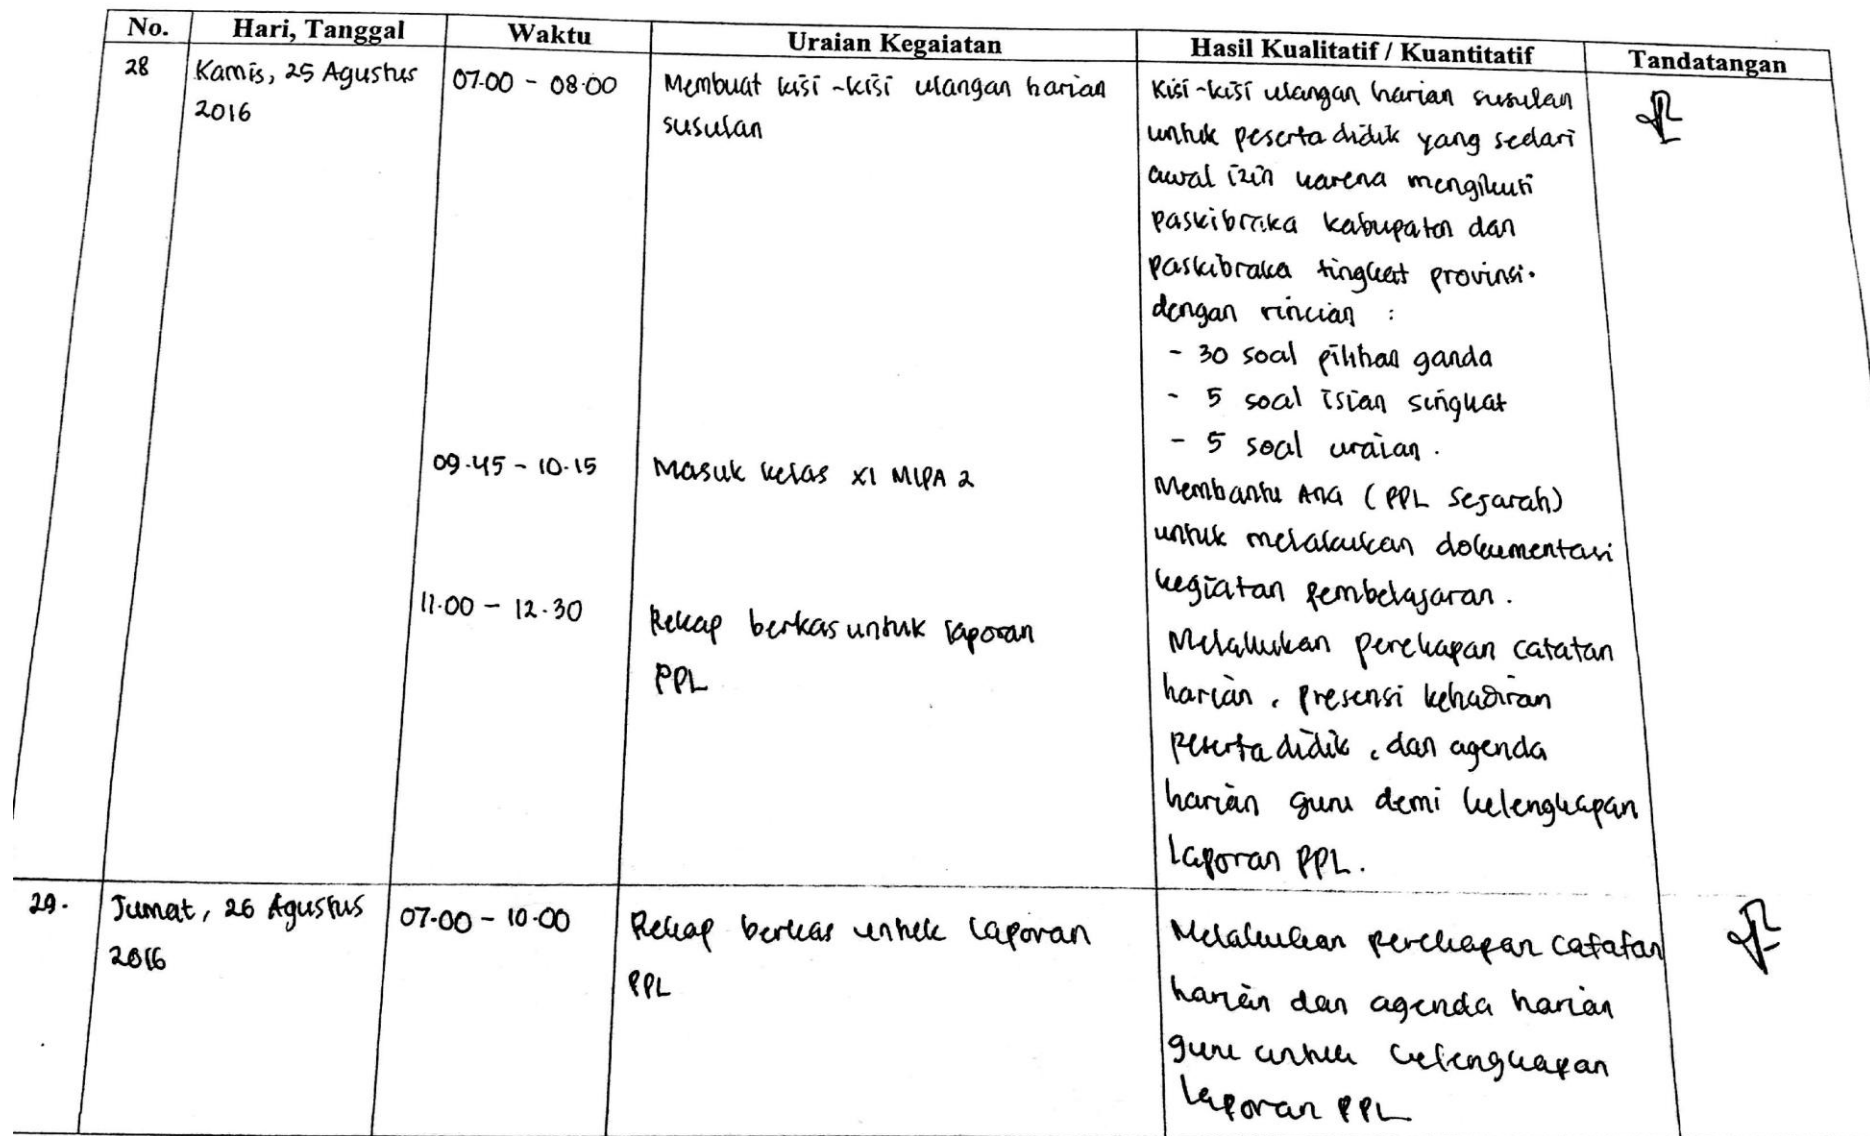 No. Hari, Tanggal Waktu Uraian Kegaiatan Hasil Kualitatif / Kuantitatif Tandatangan
28 Kamis, 25 Agustus 07.00 - 08.00 Membuat kisi-kisi ulangan harian Kisi-kisi ulangan harian susulan
2016 susulan untuk peserta didik yang sedari
awal izin karena mengikuti
paskibraka kabupaten dan
paskibraka tingkat provinsi.
dengan rincian :
- 30 soal pilihan ganda
- 5 soal isian singkat
- 5 soal uraian.
09.45 - 10.15 Masuk kelas XI MIPA 2 Membantu Ana (PPL Sejarah)
untuk melakukan dokumentasi
kegiatan pembelajaran.
11.00 - 12.30 Rekap berkas untuk laporan Melakukan perekapan catatan
PPL harian, presensi kehadiran
peserta didik, dan agenda
harian guru demi kelengkapan
Laporan PPL.
29. Jumat, 26 Agustus 07.00 - 10.00 Rekap berkas untuk laporan Melakukan perekapan catatan
2016 PPL harian dan agenda harian
guru untuk kelengkapan
laporan PPL